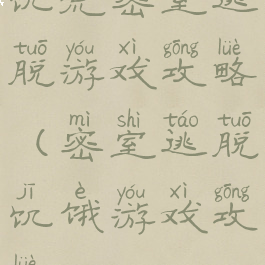 饥荒密室逃
tuō yóu xì gōng lüè
脱游戏攻略
mì shì táo tuō
（密室逃脱
jī è yóu xì gōng
饥饿游戏攻
lüè